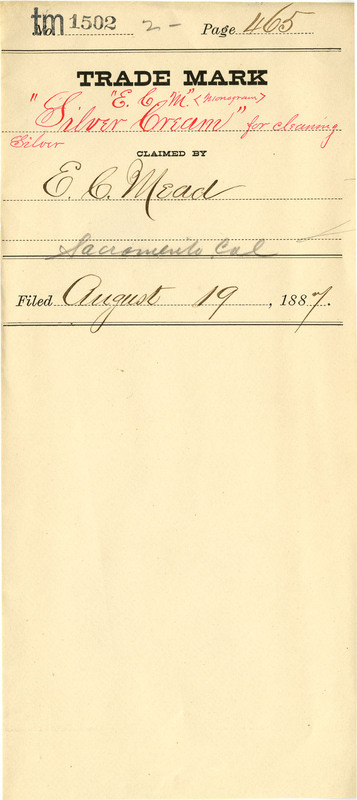 tm 1502 2- Page 465
TRADE MARK
"E. C. M" <monogram>
"Silver Cream" for cleaning
Silver
CLAIMED BY
E. C. Mead
Sacramento, Cal
Filed August 19, 1887.